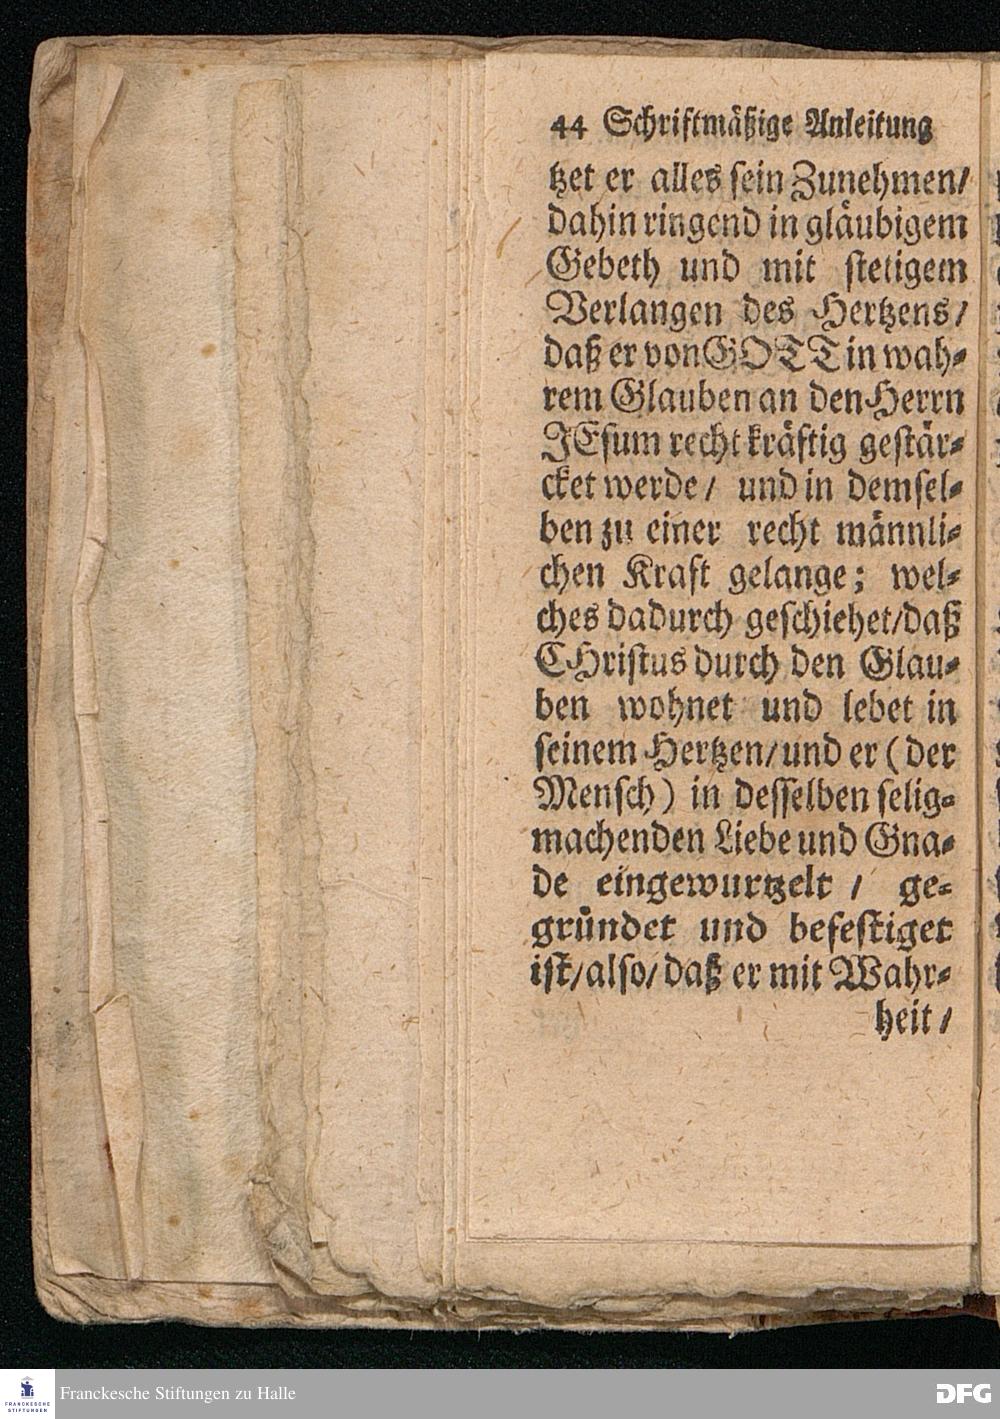 44 Schriftmäßige Anleitung
tzet er alles sein Zunehmen/
dahin ringend in gläubigem
Gebeth und mit stetigem
Verlangen des Hertzens/
daß er von GOTT in wah-
rem Glauben an den Herrn
JEsum recht kräftig gestär-
cket werde/ und in demsel-
ben zu einer recht männli-
chen Kraft gelange; wel-
ches dadurch geschiehet/daß
CHristus durch den Glau-
ben wohnet und lebet in
seinem Hertzen/und er (der
Mensch) in desselben selig-
machenden Liebe und Gna-
de eingewurtzelt / ge-
gründet und befestiget
ist/also/daß er mit Wahr-
heit/
FRANCKESCHE
STIFTUNGEN
Franckesche Stiftungen zu Halle
DFG